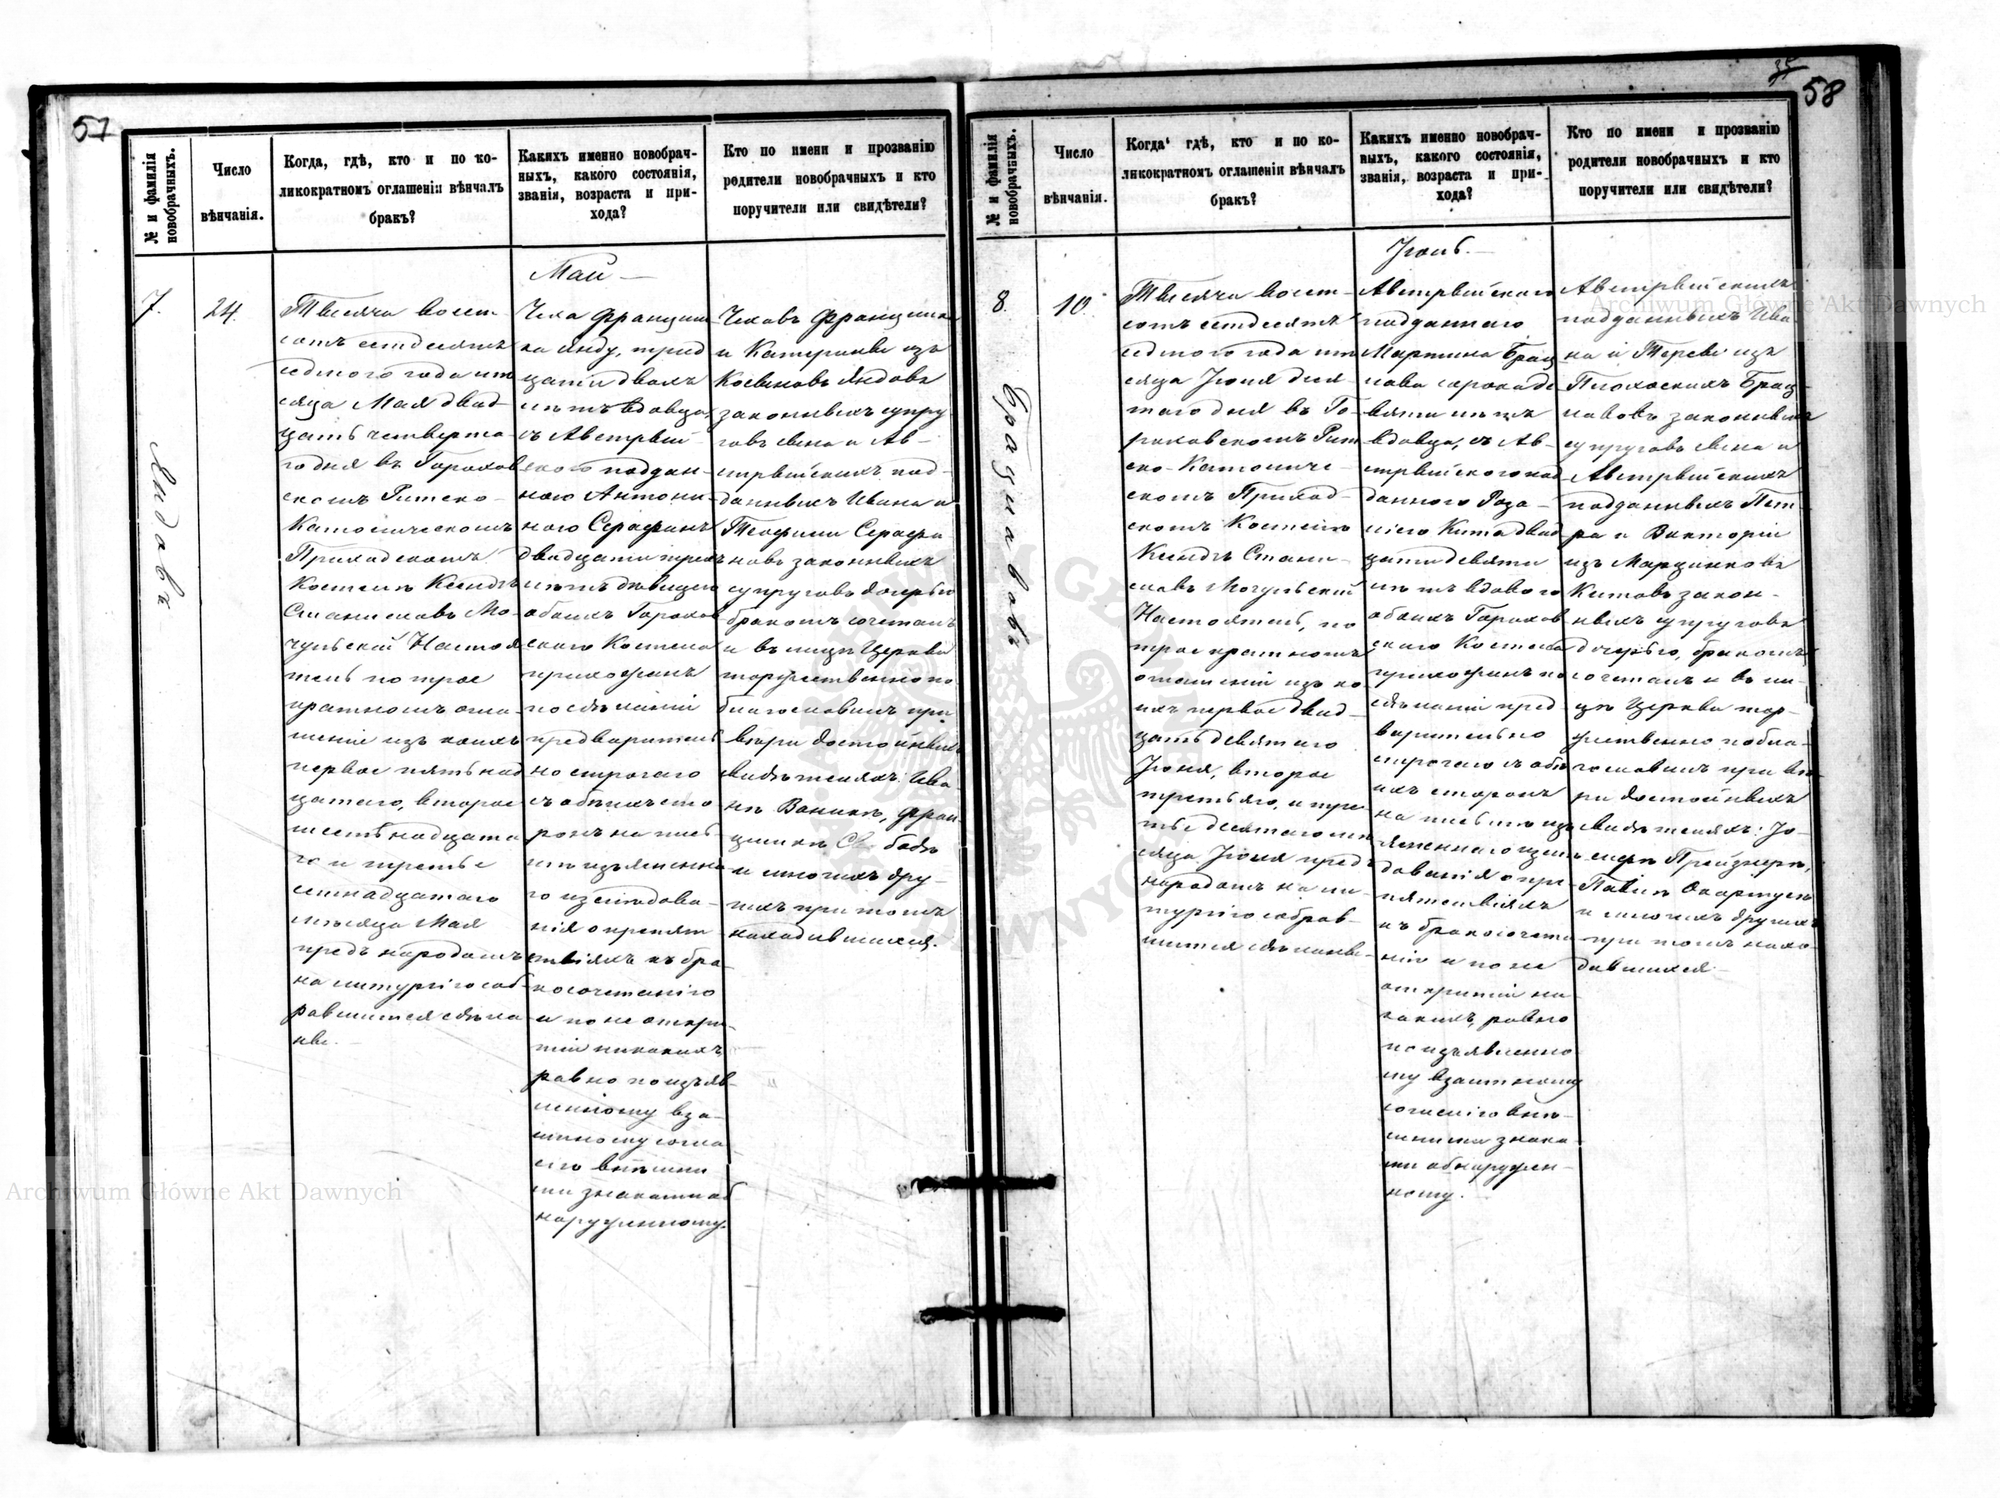 57
№ и фамилія новобрачныхъ.
Число вѣнчанія.
Когда, гдѣ, кто и по ко-
ликократномъ оглашеніи вѣнчалъ
бракъ?
Какихъ именно новобрач-
ныхъ, какого состоянія,
званія, возраста и при-
хода?
Кто по имени и прозванію
родители новобрачныхъ и кто
поручители или свидѣтели?
Май
7.
24.
Тысяча восем-
сотъ семдесятъ
седмого года мѣ
сяца Мая двад-
цать четверта-
го дня въ Горохов
скомъ Римско-
Католическомъ
Приходскомъ
Костелѣ Ксендзъ
Станиславъ Мо-
чульскій Настоя
тель по трое
кратномъ огла-
шеніи изъ коихъ
первое пятьнад
цатаго, второе
шестьнадцата
го и третье
семнадцатаго
мѣсяца Мая
предъ народомъ
на литургію соб-
равшимся сдѣла
ны.
Чеха Францим
ка Янду, трид
цати двохъ
лѣтъ вдовца,
съ Австрій-
скаго поддан-
наго Антони-
ного Серафинъ
двадцати трехъ
лѣтъ дѣвицею
обоихъ Горохов
скаго Костела
прихожанъ
по сдѣланіи
предваритель
но строгаго
съ обѣихъ сто
ронъ на пись
мѣ изъясненна
го изслѣдова-
нія о препят
ствіяхъ къ бра-
косочетанію
и по не откры-
тіи никакихъ
равно по изъяв
ленному вза-
имному согла
сію внѣшни
ми знаками об
наруженному.
Чеховъ Францишка
и Катерины изъ
Косиковъ Яндовъ
законныхъ супру-
говъ сына и Ав-
стрійскихъ под-
данныхъ Ивана и
Теофили Серафи-
новъ законныхъ
супруговъ дочерью
бракомъ сочеталъ
и въ лицѣ Церкви
торжественно по-
благословилъ при
вѣри достойныхъ
свидѣтеляхъ: Ива-
нѣ Ваникѣ, Фран-
цишкѣ
и многихъ дру-
гихъ при томъ
находившихся.
Яндовъ
58
35
№ и фамилія новобрачныхъ.
Число вѣнчанія.
Когда гдѣ, кто и по ко-
ликократномъ оглашеніи вѣнчалъ
бракъ?
Какихъ именно новобрач-
ныхъ, какого состоянія,
званія, возраста и при-
хода?
Кто по имени и прозванію
родители новобрачныхъ и кто
поручители или свидѣтели?
Іюнь.
8.
10.
Тысяча восем-
сотъ семдесятъ
седмого года мѣ
сяца Іюня деся-
таго дня въ Го-
роховскомъ Рим
ско-Католиче-
скомъ Приход-
скомъ Костелѣ
Ксендзъ Стани-
славъ Мочульскій
Настоятель, по
троекратномъ
оглашеніи изъ ко
ихъ первое двад-
цать девятаго
Іюня, второе
третьяго, и тре
тье десятаго мѣ
сяца Іюня предъ
народомъ на ли-
тургію собрав-
шимся сдѣланы.
Австрійскаго
подданнаго
Мартина Брац
лава сорокаде
вяти лѣтъ
вдовца, съ Ав-
стрійскаго под
даннаго Роза-
ліею Кита двад
цатидевяти
лѣтъ вдовою
обоихъ Горохов
скаго Костела
прихожанъ по
сдѣланіи пред
варительно
строгаго съ обѣ
ихъ сторонъ
на письмѣ изъ
ясненнаго изслѣ
дованія о пре-
пятствіяхъ
къ бракосочета
нію и по не
открытіи ни-
какихъ, равно
по изъявленно-
му взаимному
согласію внѣ-
шними знака-
ми обнаружен-
ному.
Австрійскихъ
подданныхъ Ива-
на и Терезы изъ
Брац-
лавовъ законныхъ
супруговъ сына и
Австрійскихъ
подданныхъ Пет-
ра и Викторіи
изъ Марцинковъ
Китовъ закон-
ныхъ супруговъ
дочерью, бракомъ
сочеталъ и въ ли-
цѣ Церкви тор-
жественно побла-
гословилъ при вѣ-
ри достойныхъ
свидѣтеляхъ: Іо-
сифѣ
Павлѣ
и многихъ другихъ
при томъ нахо-
дившихся.
Брацлавовъ
Archiwum Główne Akt Dawnych
Archiwum Główne Akt Dawnych